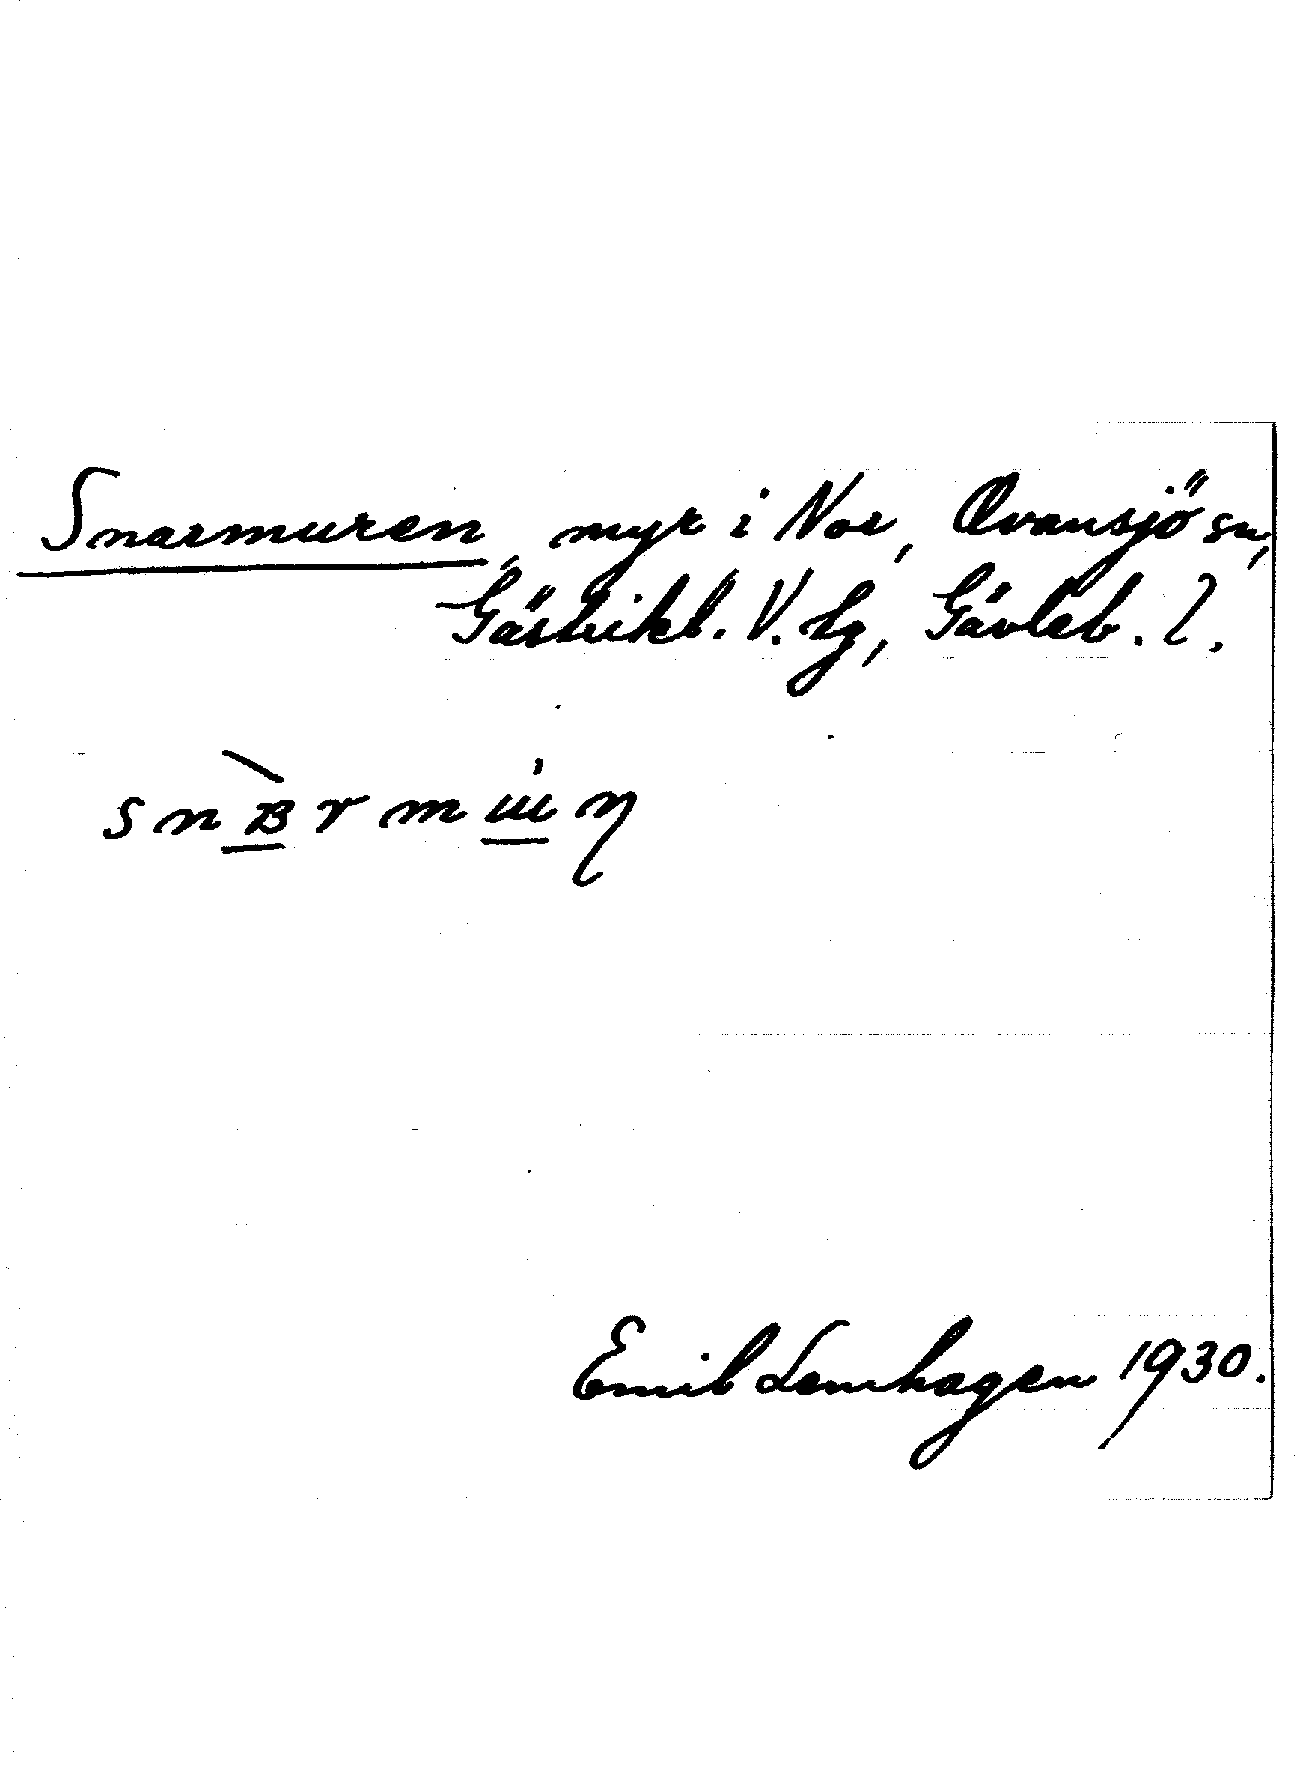 Snarmuren, myr i Nor, Ovansjö sn,
Gästrikl. V. tg, Gävleb. l.
Emil Lenhagen 1930.